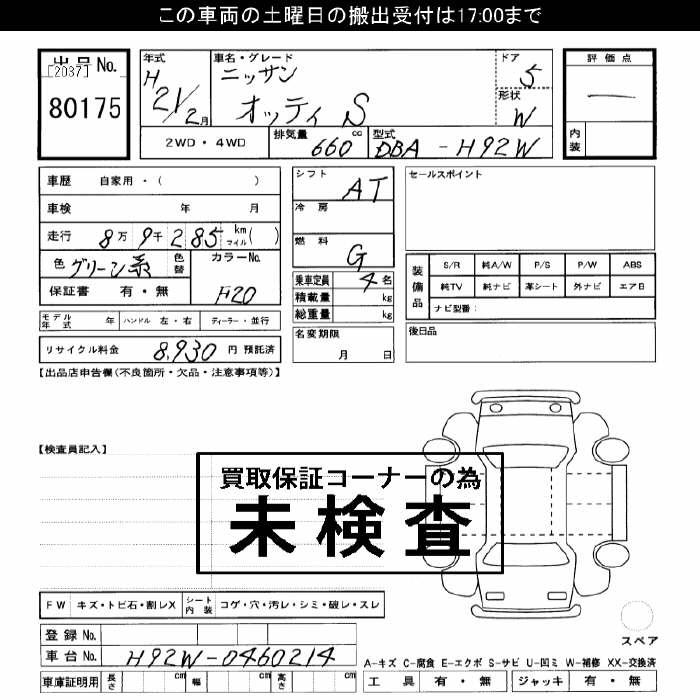 この車両の土曜日の搬出受付は17:00まで
出品No.
[2037]
80175
年式
H
21/2月
車名・グレード
ニッサン
オッティ S
ドア
5
形状
W
評価点
―
内装
2WD・4WD
排気量 660 cc
型式 DBA-H92W
車歴 自家用・( )
車検 年 月
走行 8万9千285 km マイル( )
色 グリーン系 色替
カラーNo.
F20
保証書 有・無
モデル年式 年 ハンドル 左・右 ディーラー・並行
リサイクル料金 8,930 円 預託済
シフト AT
冷房
燃料 G
乗車定員 4名
積載量 kg
総重量 kg
名変期限
月 日
セールスポイント
装備品
S/R 純A/W P/S P/W ABS
純TV 純ナビ 革シート 外ナビ エアB
ナビ型番:
後日品
【出品店申告欄(不良箇所・欠品・注意事項等)】
【検査員記入】
買取保証コーナーの為
未検査
FW キズ・トビ石・割レX シート内装 コゲ・穴・汚レ・シミ・破レ・スレ
スペア
登録No.
車台No. H92W-0460214
車庫証明用 長さ cm 幅 cm 高さ cm
A-キズ C-腐食 E-エクボ S-サビ U-凹ミ W-補修 XX-交換済
工具 有・無 ジャッキ 有・無